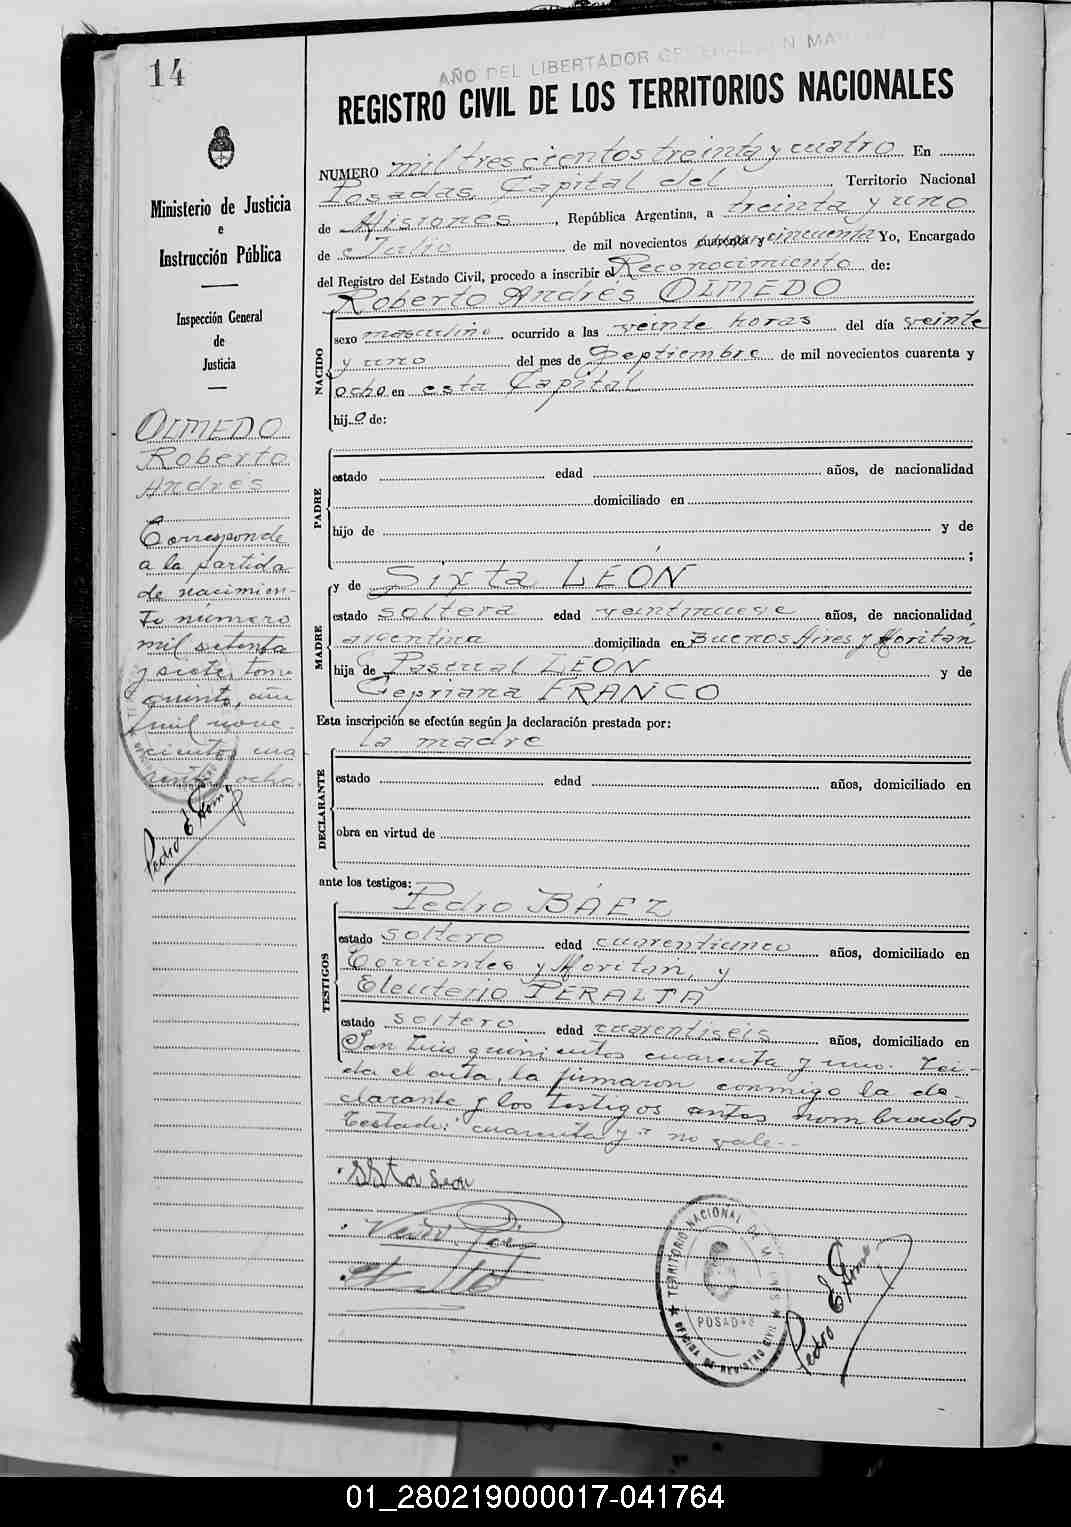 14
AÑO DEL LIBERTADOR GENERAL SAN MARTIN
REGISTRO CIVIL DE LOS TERRITORIOS NACIONALES
Ministerio de Justicia
e
Instrucción Pública
Inspección General
de
Justicia
OLMEDO
Roberto
Andrés
Corresponde
a la partida
de nacimien-
to número
mil setenta
y siete, tomo
quinto, año
mil nove-
cientos cua-
renta y ocho.
NUMERO mil trescientos treinta y cuatro En
Posadas, Capital del Territorio Nacional
de Misiones, República Argentina, a treinta y uno
de Julio de mil novecientos cuarenta y cincuenta Yo, Encargado
del Registro del Estado Civil, procedo a inscribir el Reconocimiento de:
Roberto Andrés OLMEDO
NACIDO
sexo masculino ocurrido a las veinte horas del día veinte
y uno del mes de Septiembre de mil novecientos cuarenta y
ocho en esta Capital
hijo de:
PADRE
estado edad años, de nacionalidad
domiciliado en
hijo de y de
;
y de Sixta LEÓN
MADRE
estado soltera edad veintinueve años, de nacionalidad
argentina domiciliada en Buenos Aires y Moritán
hija de Pascual LEÓN y de
Cepriana FRANCO
Esta inscripción se efectúa según la declaración prestada por:
la madre
DECLARANTE
estado edad años, domiciliado en
obra en virtud de
ante los testigos:
Pedro BÁEZ
TESTIGOS
estado soltero edad cuarenticinco años, domiciliado en
Corrientes y Moritán, y
Eleuterio PERALTA
estado soltero edad cuarentiseis años, domiciliado en
San Luis quinientos cuarenta y uno. Leí-
da el acta, la firmaron conmigo la de-
clarante y los testigos antes nombrados
Testado: "cuarenta y" no vale--
TERRITORIO NACIONAL DE MISIONES
POSADAS
OFICINA DE REGISTRO CIVIL
01_280219000017-041764